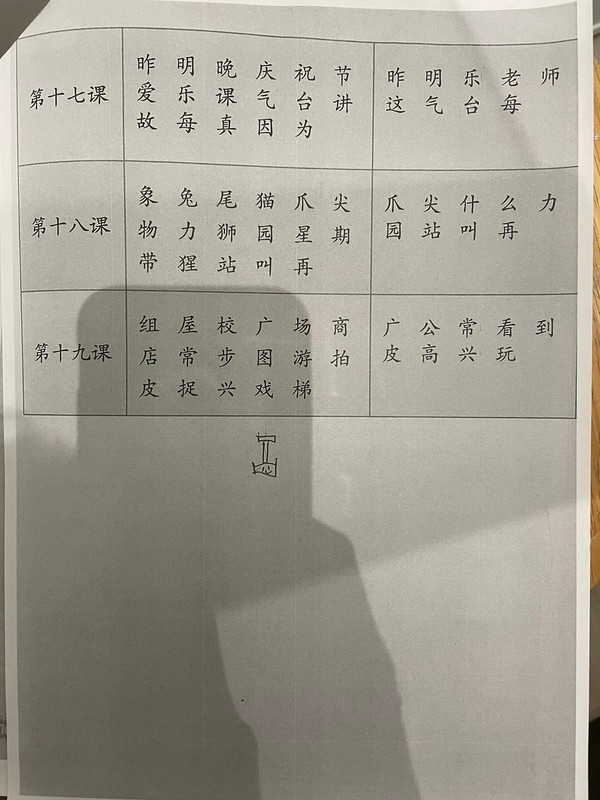 昨 明 晚 庆 祝 节 昨 明 乐 老 师
第十七课 爱 乐 课 气 台 讲 这 气 台 每
故 每 真 因 为
象 兔 尾 猫 爪 尖 爪 尖 什 么 力
第十八课 物 力 狮 园 星 期 园 站 叫 再
带 猩 站 叫 再
组 屋 校 广 场 商 广 公 常 看 到
第十九课 店 常 步 图 游 拍 皮 高 兴 玩
皮 捉 兴 戏 梯